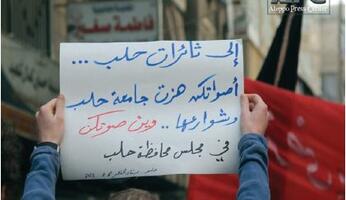 Aleppo Press Center
فاطمة سفنج
إلى ثائرات حلب ...
أصواتكن هزت جامعة حلب
وشوارعها .. وين صوتكن
في مجلس محافظة حلب